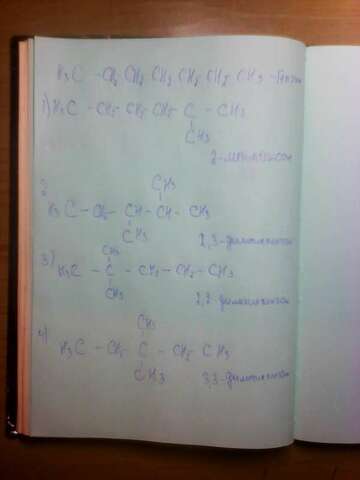 H₃C - CH₂ CH₂ CH₂ CH₂ CH₂ CH3 - Гептан
1) H₃C - CH₂ - CH₂ - CH₂ - C - CH₃
CH₃
2-метилгексан
2
CH₃
H₃C - CH₂ - CH - CH - CH₃
CH₃
2,3-диметилпентан
3)
CH₃
H₃C - C - CH₂ - CH₂ - CH₃
CH₃
2,2 диметилпентан
4)
CH₃
H₃C - CH₂ - C - CH₂ - CH₃
CH3
3,3-диметилпентан